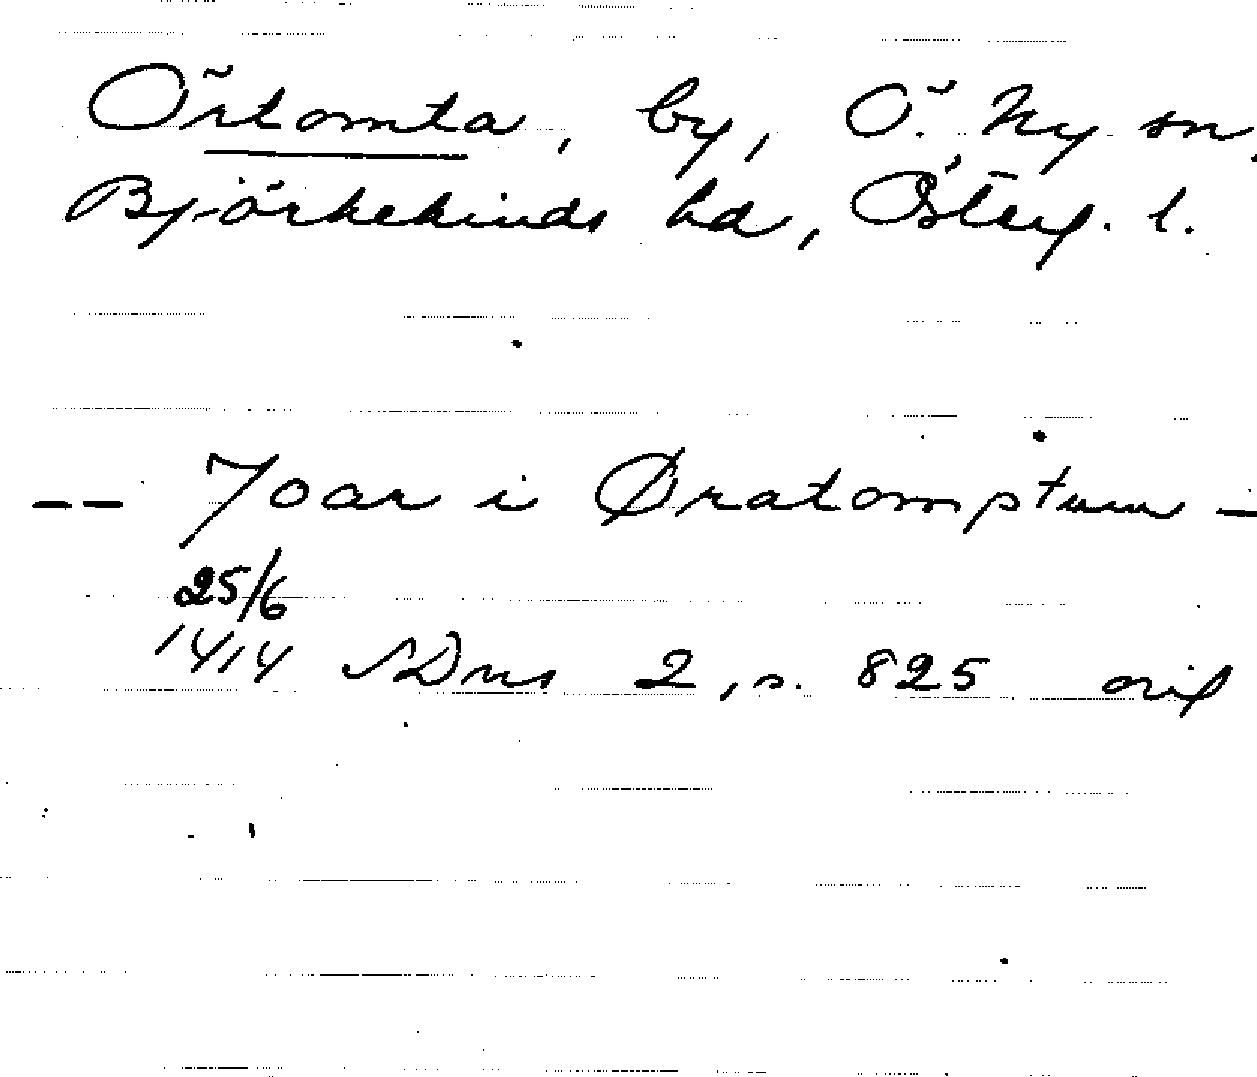 Örtomta, by, Ö. Ny sn,
Björkekinds hd, Österg. l.
-- Joar i Øratomptum -
25/6
1414 SDns 2, s. 825 orig